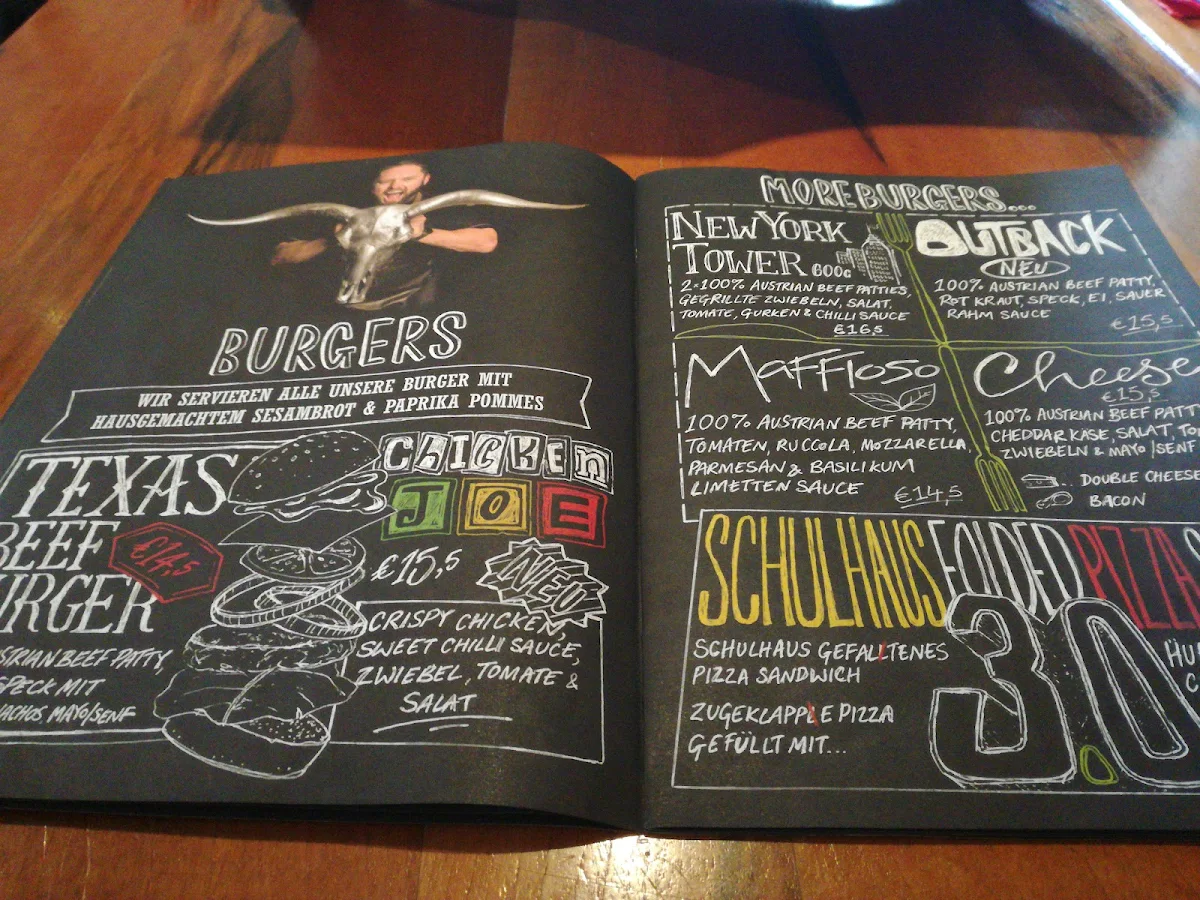 BURGERS
WIR SERVIEREN ALLE UNSERE BURGER MIT
HAUSGEMACHTEM SESAMBROT & PAPRIKA POMMES
TEXAS
BEEF
€14,5
URGER
STRIAN BEEF PATTY,
SPECK MIT
NACHOS MAYO/SENF
CHICKEN
JOE
€15,5
NEU
CRISPY CHICKEN,
SWEET CHILLI SAUCE,
ZWIEBEL, TOMATE &
SALAT
MORE BURGERS...
NEW YORK
TOWER 600G
2×100% AUSTRIAN BEEF PATTIES,
GEGRILLTE ZWIEBELN, SALAT,
TOMATE, GURKEN & CHILLI SAUCE
€16,5
OUTBACK
NEU
100% AUSTRIAN BEEF PATTY,
ROT KRAUT, SPECK, EI, SAUER
RAHM SAUCE
€15,5
MAFFIOSO
100% AUSTRIAN BEEF PATTY,
TOMATEN, RUCCOLA, MOZZARELLA,
PARMESAN & BASILIKUM
LIMETTEN SAUCE
€14,5
Cheese
€15,5
100% AUSTRIAN BEEF PATT
CHEDDAR KÄSE, SALAT, TO
ZWIEBELN & MAYO/SENF
DOUBLE CHEESE
BACON
SCHULHAUS FOLDED PIZZA
3.0
SCHULHAUS GEFALLTENES
PIZZA SANDWICH
ZUGEKLAPPLE PIZZA
GEFÜLLT MIT...